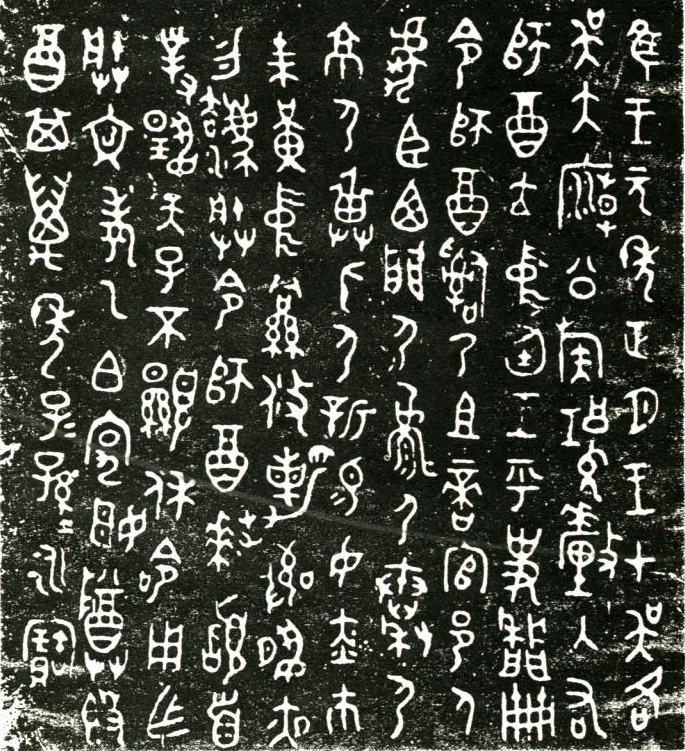 隹王元年正月王才吳各
吳大廟公族釐入右
師酉立中廷王乎史冊
令師酉嗣乃且啻官邑人
虎臣西門尸尸秦尸
京尸尸新易女赤巿
朱黃中攸勒敬夙夜
勿灋朕令師酉拜稽首
對揚天子不顯休令用乍
朕文考乙白宄姬尊簋
酉其萬年子子孫孫永寶